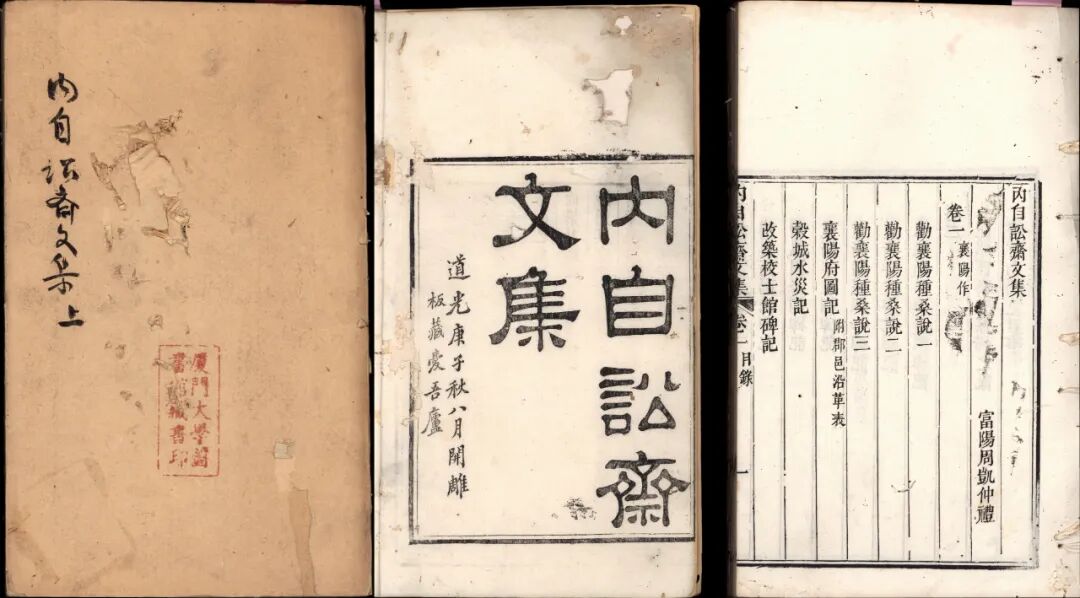 内自訟齋文集上
厦門大學圖
書館藏書印
内自訟齋
文集
道光庚子秋八月開雕
板藏愛吾廬
内自訟齋文集
富陽周凱仲禮
卷一 襄陽作
勸襄陽種桑說一
勸襄陽種桑說二
勸襄陽種桑說三
襄陽府圖記 附郡邑沿革表
穀城水災記
改築校士館碑記
内自訟齋文集 卷一 目錄 一